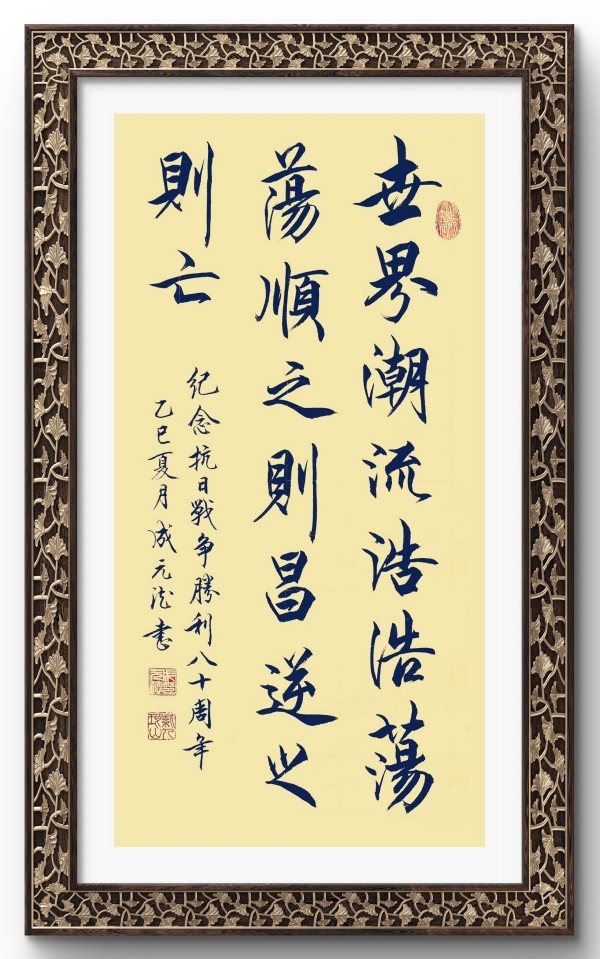 世界潮流浩浩蕩
蕩順之則昌逆之
則亡
紀念抗日戰争勝利八十周年
乙巳夏月成元法書